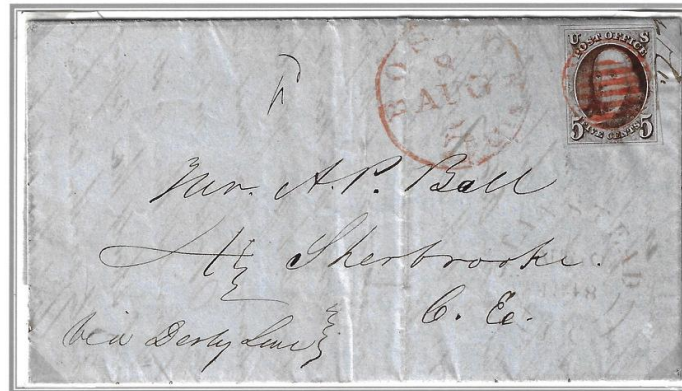 BOSTON
8
AUG
U S
POST OFFICE
5 FIVE CENTS 5
Mr. A. P. Ball
Sherbrooke.
C. E.
via Derby Line